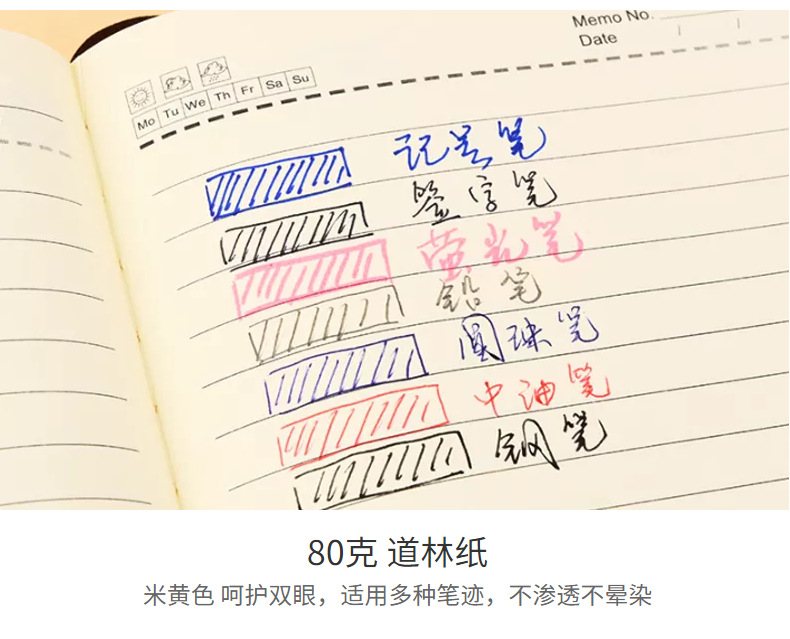 Memo No.
Date
Mo Tu We Th Fr Sa Su
记号笔
签字笔
萤光笔
铅笔
圆珠笔
中油笔
钢笔
80克 道林纸
米黄色 呵护双眼，适用多种笔迹，不渗透不晕染